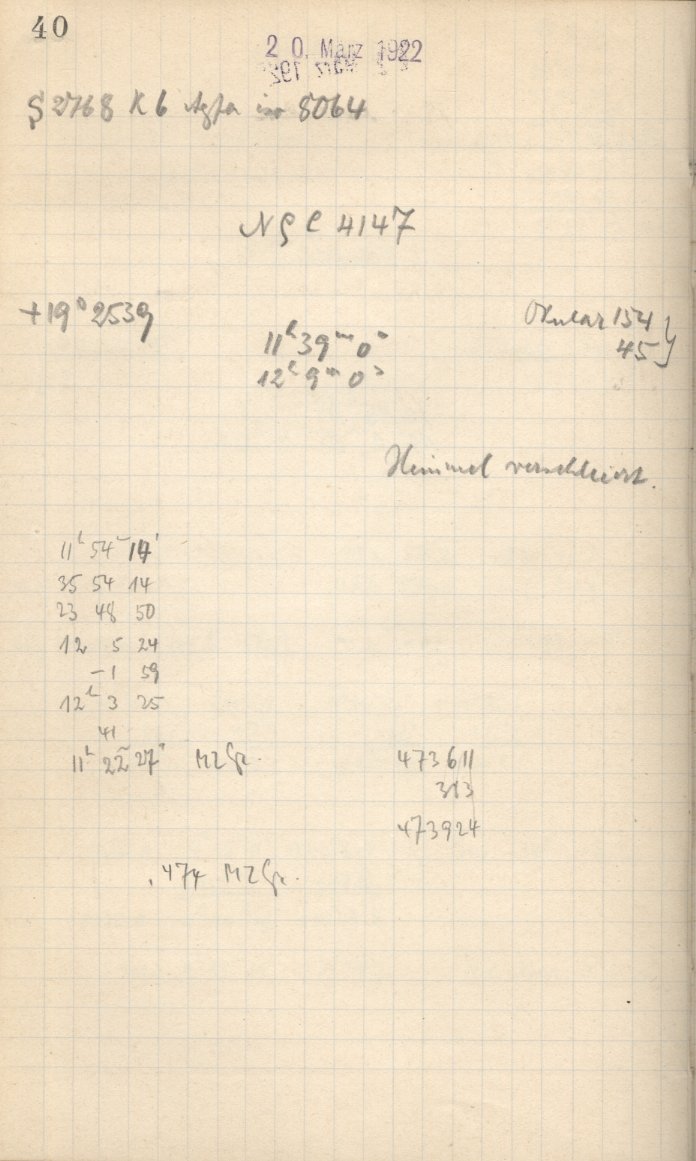 40
20. März 1922
S 2768 K6 Agfa iso 8064
NGC 4147
+19° 2539
Okular 154 }
45 }
11h 39m 0s
12h 9m 0s
Himmel verschleiert.
11h 54m 14s
35 54 14
23 48 50
12 5 24
-1 59
12h 3 25
41
11h 22m 27s MZGr.
473611
313
473924
.474 MZGr.